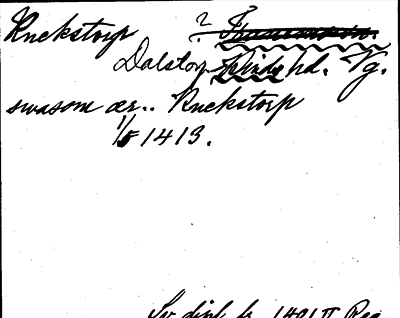 Ruckstorp ?
Dalstorp Kinds hd. Vg.
swasom ær.. Ruckstorp
1/5 1413.
Sv. dipl. fr. 1401 II Reg